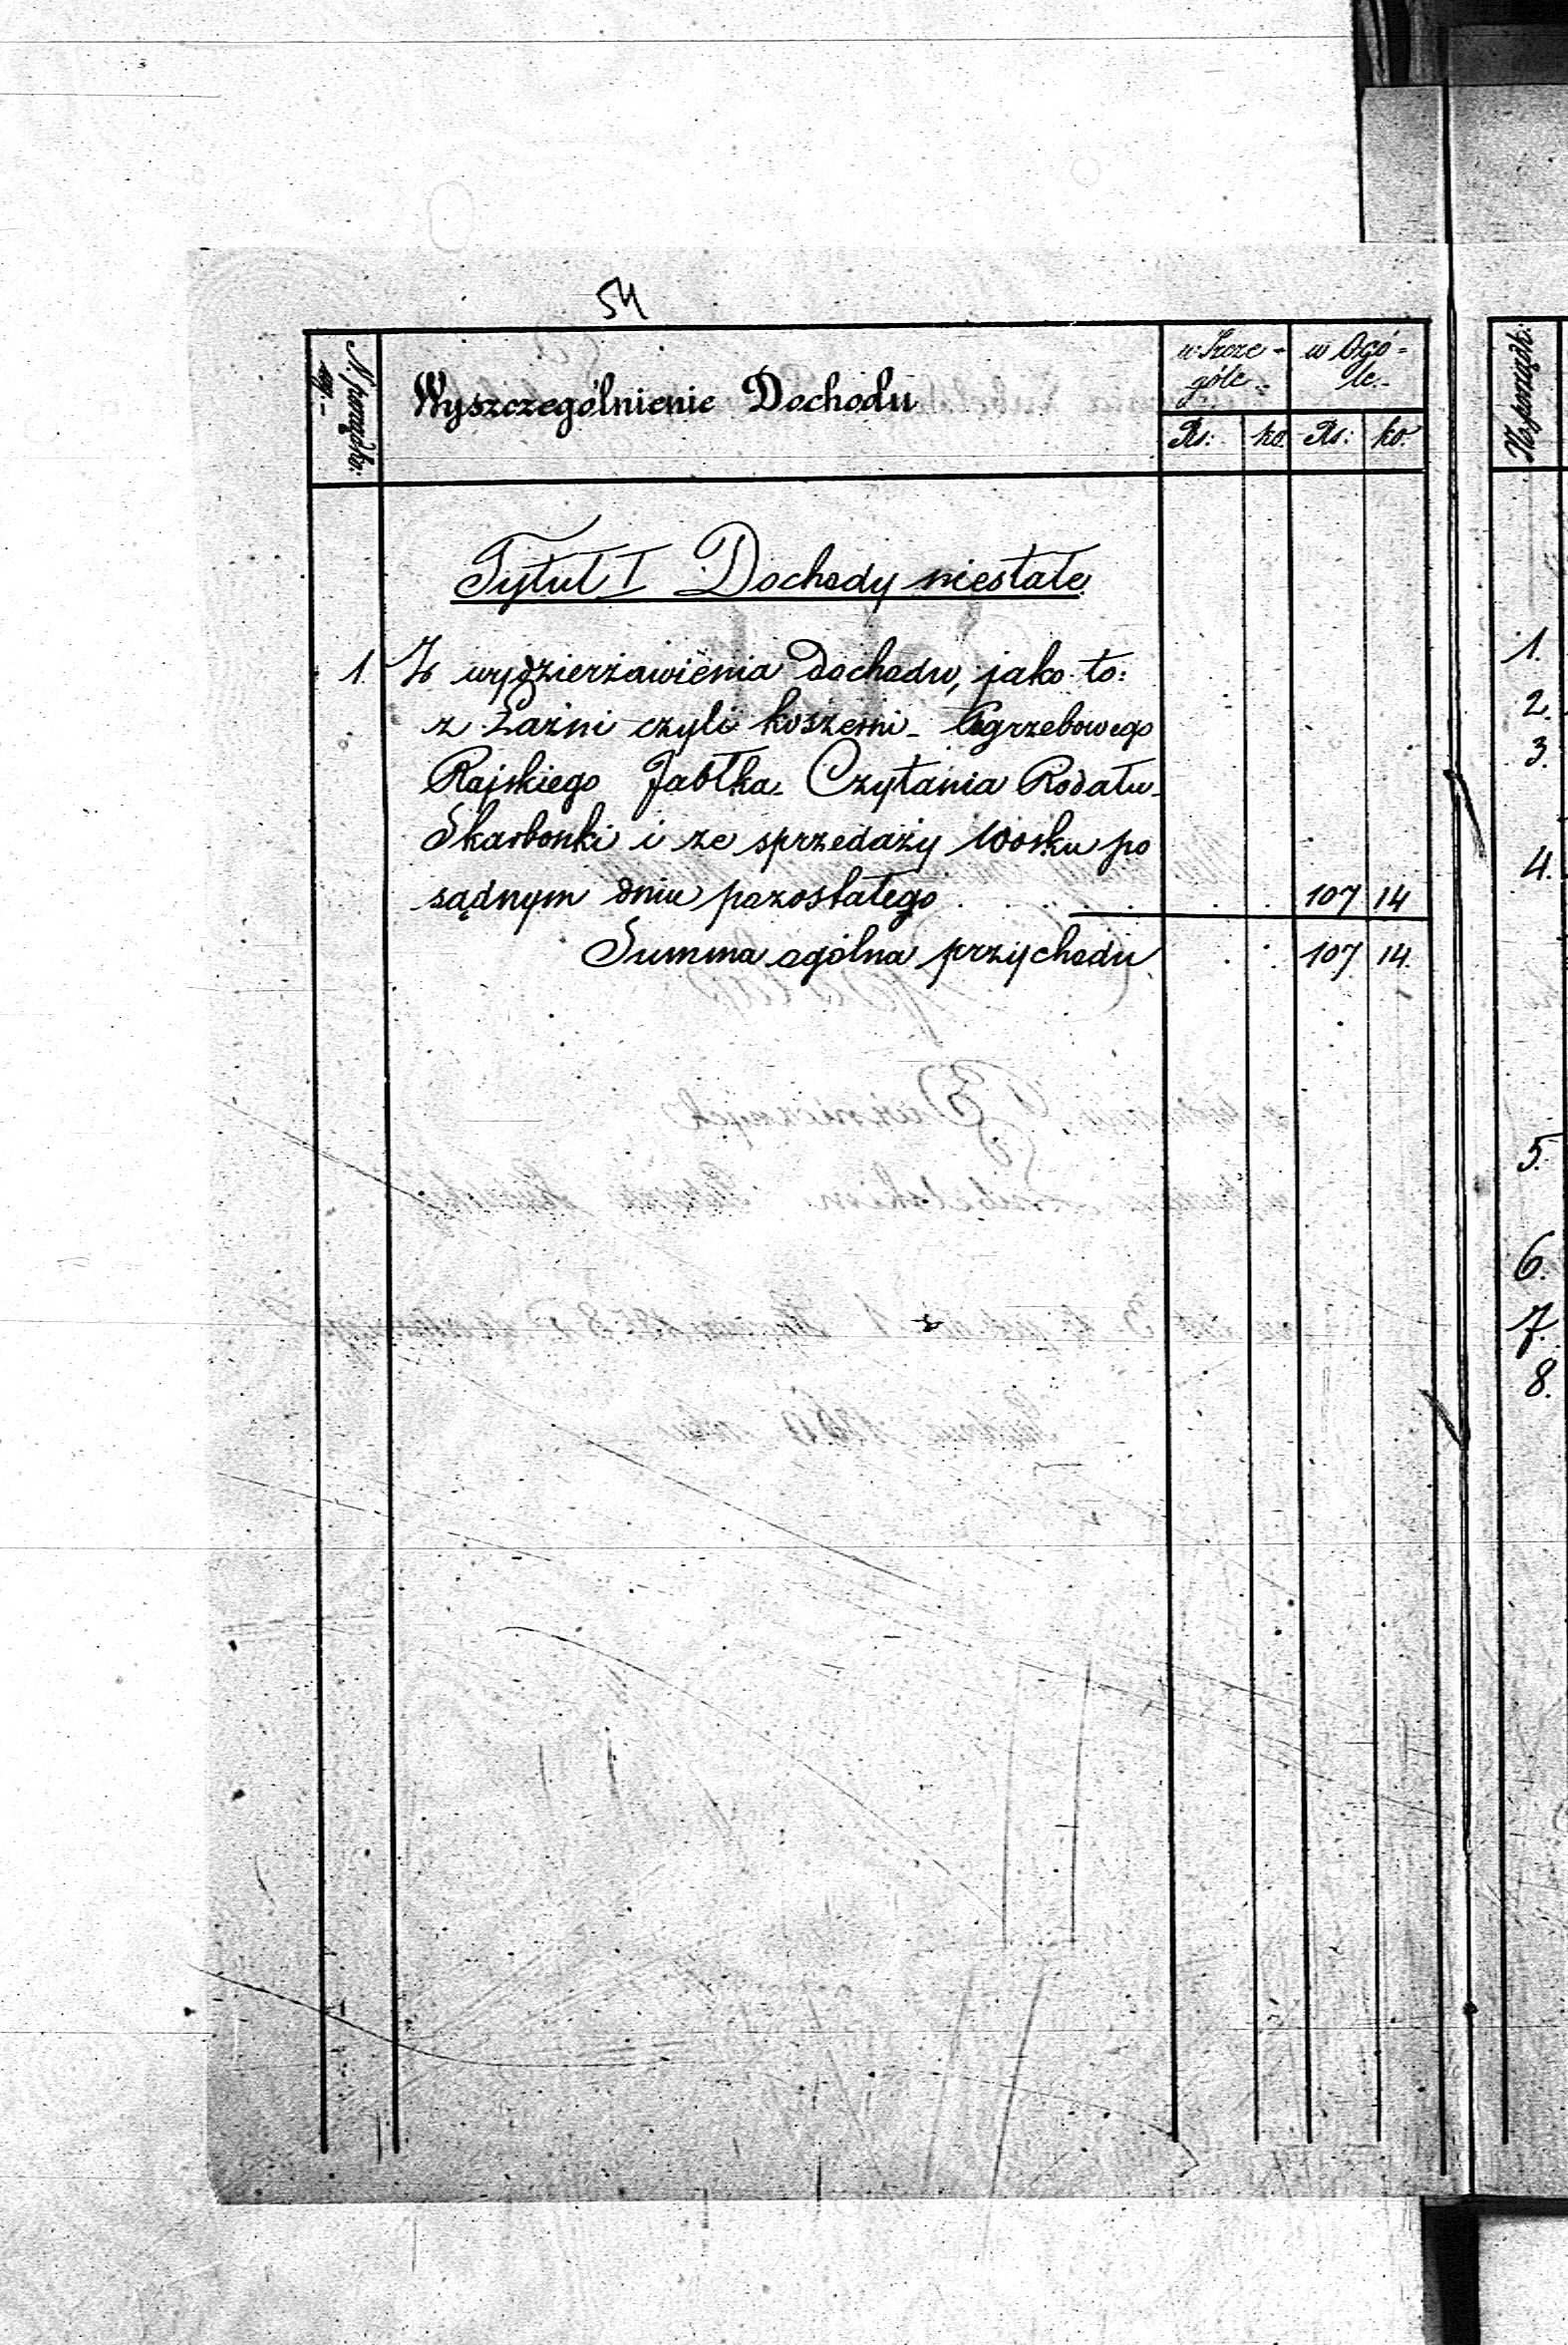 54
N. porządko:
wy.-
Wyszczególnienie Dochodu
w Szcze-
góle.-
w Ogó-
le.-
Rs: ko. Rs: ko.
Tytuł I Dochody niestałe.
1. Z wydzierżawienia Dochodu, jako to:
z Łaźni czyli koszerni- Ogrzebowego
Rajskiego Jabłka- Czytania Rodału-
Skarbonki i ze sprzedaży Wosku po
sądnym dniu pozostałego . . . . . . 107 14
Summa ogólna przychodu . . 107 14.
N. porządk:
1.
2.
3.
4.
5.
6.
7.
8.